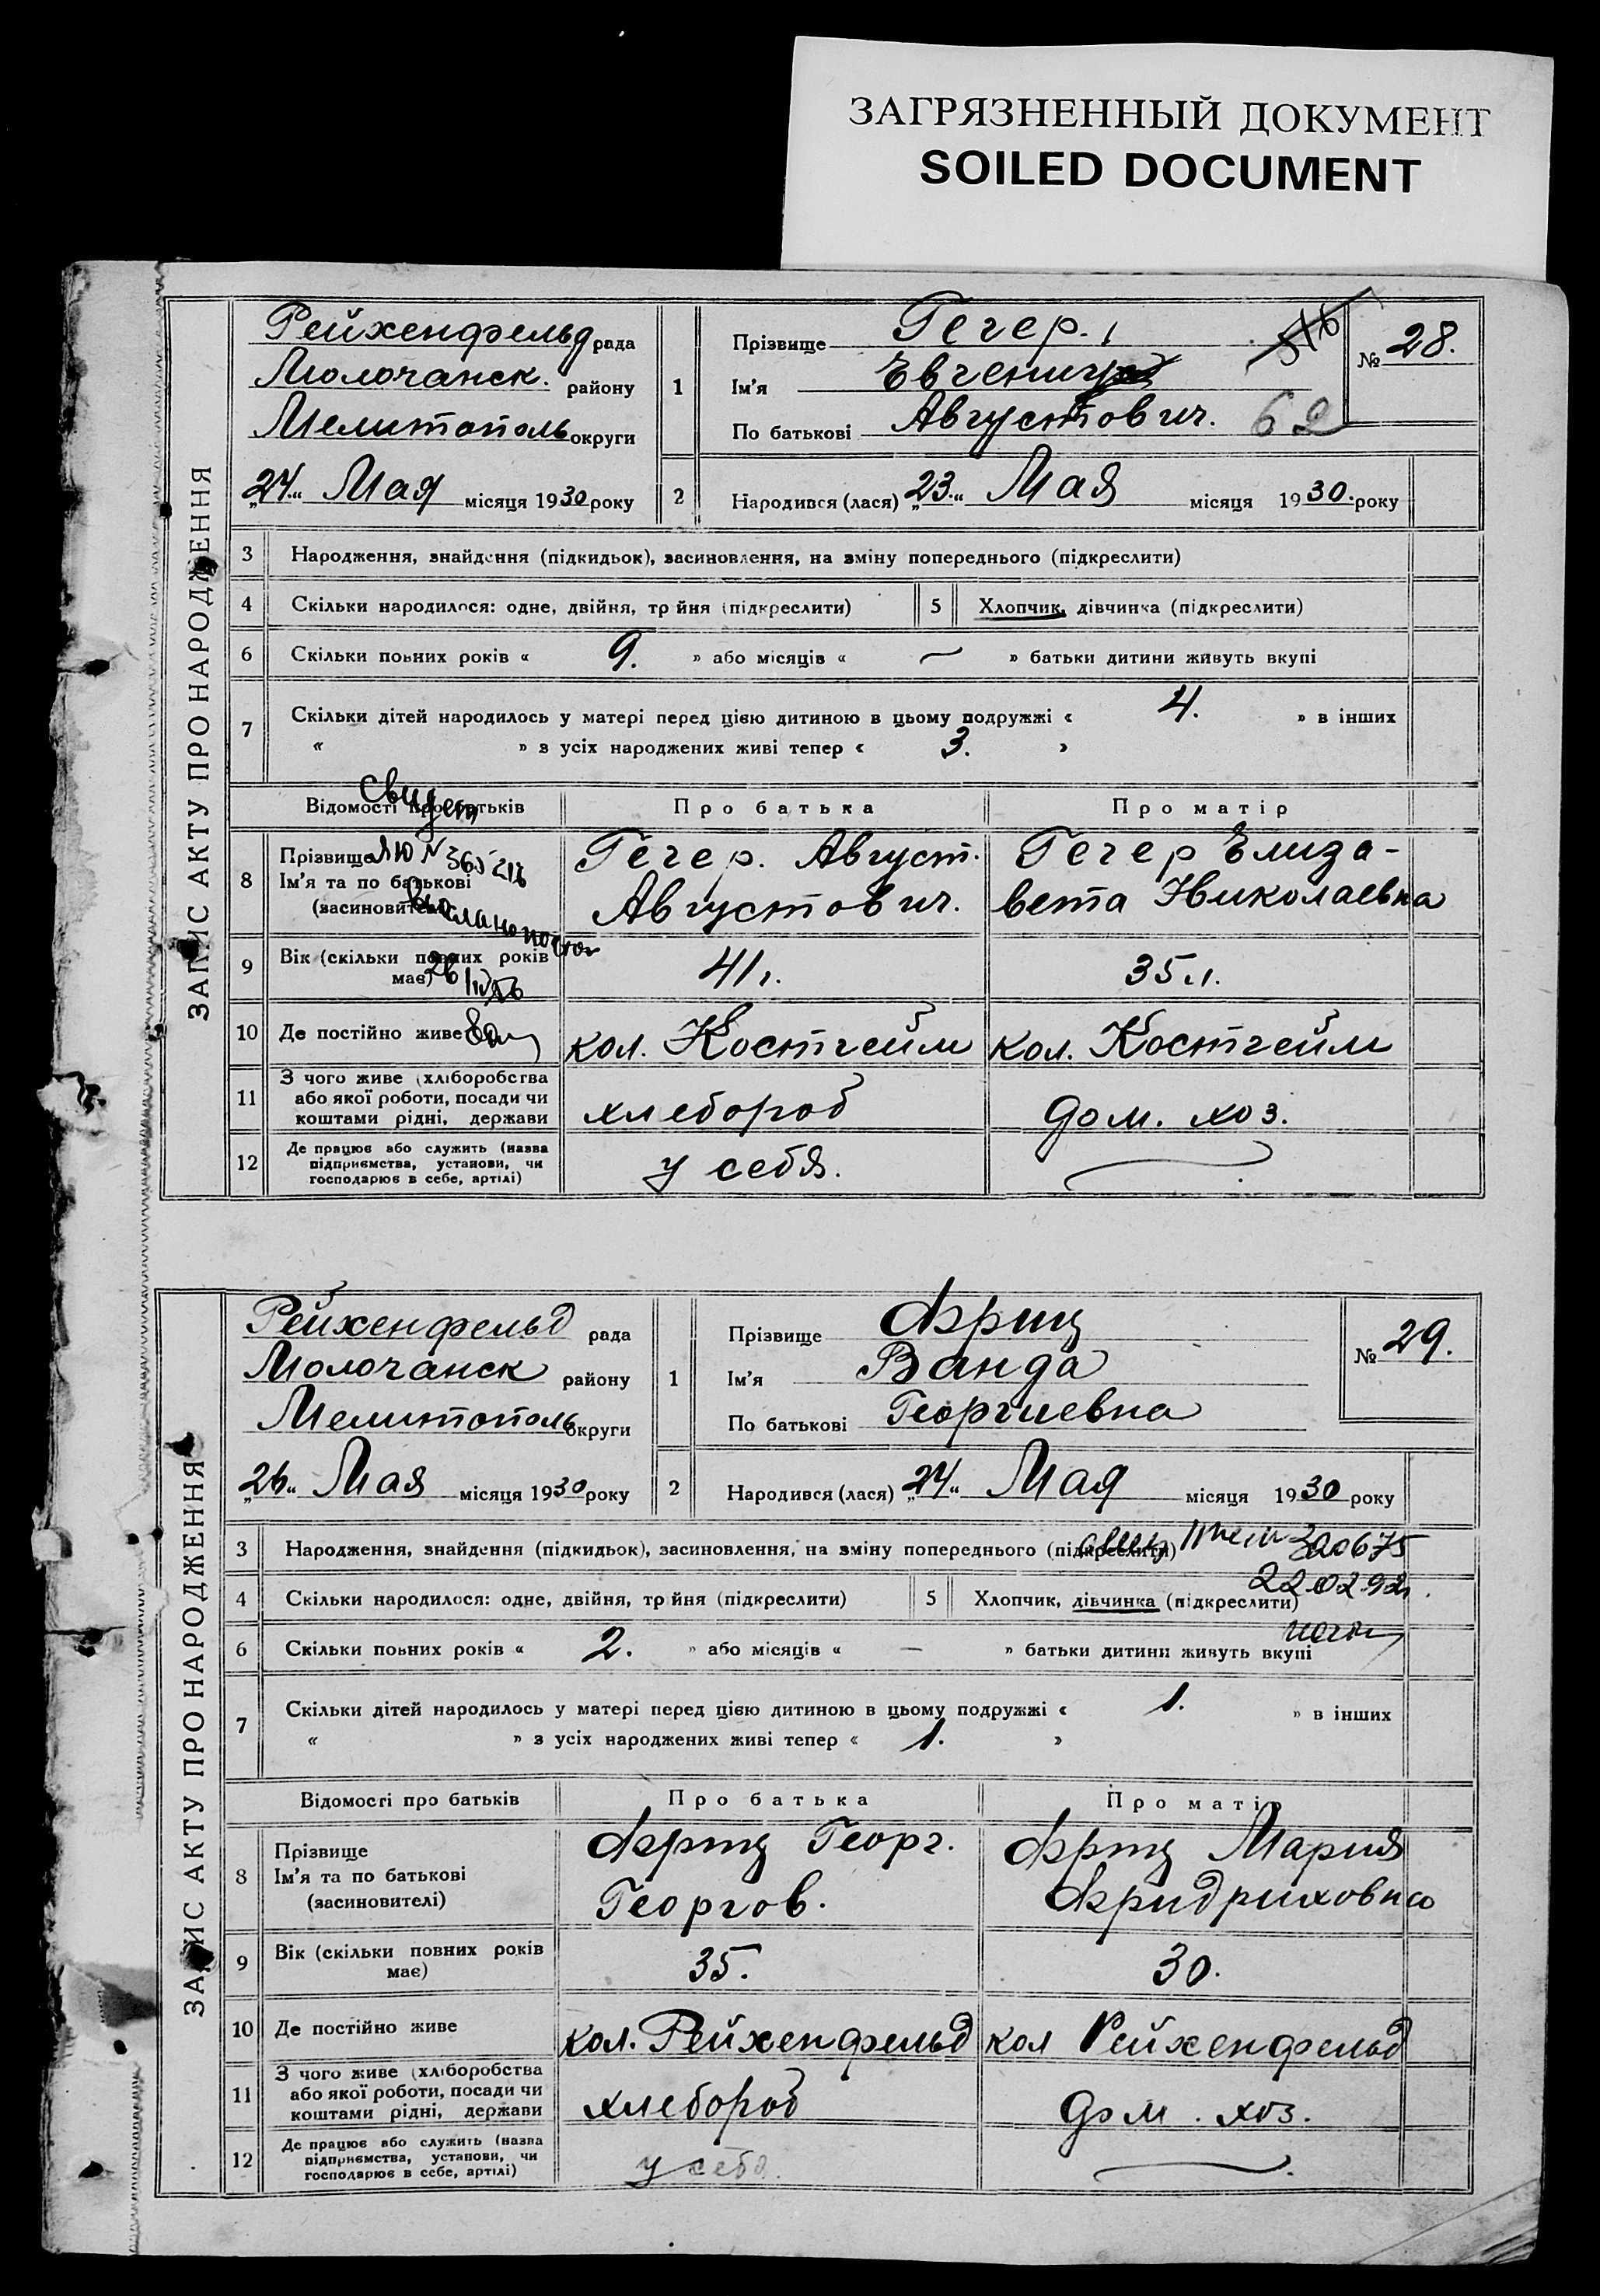 ЗАГРЯЗНЕННЫЙ ДОКУМЕНТ
SOILED DOCUMENT
ЗАПИС АКТУ ПРО НАРОДЖЕННЯ
Рейхенфельд рада
Молочанск. району
Мелитополь округи
„24“ Мая місяця 1930 року
1
Прізвище Гегер.
Ім'я Евгений
По батькові Августович.
516
62
№ 28.
2 Народився (лася) „23.“ Мая місяця 1930. року
3 Народження, знайдення (підкидьок), засиновлення, на зміну попереднього (підкреслити)
4 Скільки народилося: одне, двійня, тройня (підкреслити) 5 Хлопчик, дівчинка (підкреслити)
6 Скільки повних років « 9. » або місяців « — » батьки дитини живуть вкупі
7 Скільки дітей народилось у матері перед цією дитиною в цьому подружжі « 4. » в інших
« » з усіх народжених живі тепер « 3. »
Свидет
Відомості про батьків Про батька Про матір
8 Прізвище
Ім'я та по батькові
(засновителі)
Гегер. Август.
Августович.
Гегер Елиза-
вета Николаевна
9 Вік (скільки повних років
має)
41 г. 35 л.
10 Де постійно живе кол. Костгейм кол. Костгейм
11 З чого живе (хліборобства
або якої роботи, посади чи
коштами рідні, держави
хлебороб дом. хоз.
12 Де працює або служить (назва
підприємства, установи, чи
господарює в себе, артілі)
у себя. —
ЗАПИС АКТУ ПРО НАРОДЖЕННЯ
Рейхенфельд рада
Молочанск району
Мелитополь округи
„26“ Мая місяця 1930 року
1
Прізвище Фриц
Ім'я Ванда
По батькові Георгиевна
№ 29.
2 Народився (лася) „24“ Мая місяця 1930 року
3 Народження, знайдення (підкидьок), засиновлення, на зміну попереднього (підкреслити)
4 Скільки народилося: одне, двійня, тройня (підкреслити) 5 Хлопчик, дівчинка (підкреслити)
6 Скільки повних років « 2. » або місяців « — » батьки дитини живуть вкупі
7 Скільки дітей народилось у матері перед цією дитиною в цьому подружжі « 1. » в інших
« » з усіх народжених живі тепер « 1. »
Відомості про батьків Про батька Про матір
8 Прізвище
Ім'я та по батькові
(засиновителі)
Фриц Георг.
Георгов.
Фриц Мария
Фридриховна
9 Вік (скільки повних років
має)
35. 30.
10 Де постійно живе кол. Рейхенфельд кол Рейхенфельд
11 З чого живе (хліборобства
або якої роботи, посади чи
коштами рідні, держави
хлебороб дом. хоз.
12 Де працює або служить (назва
підприємства, установи, чи
господарює в себе, артілі)
у себя. —